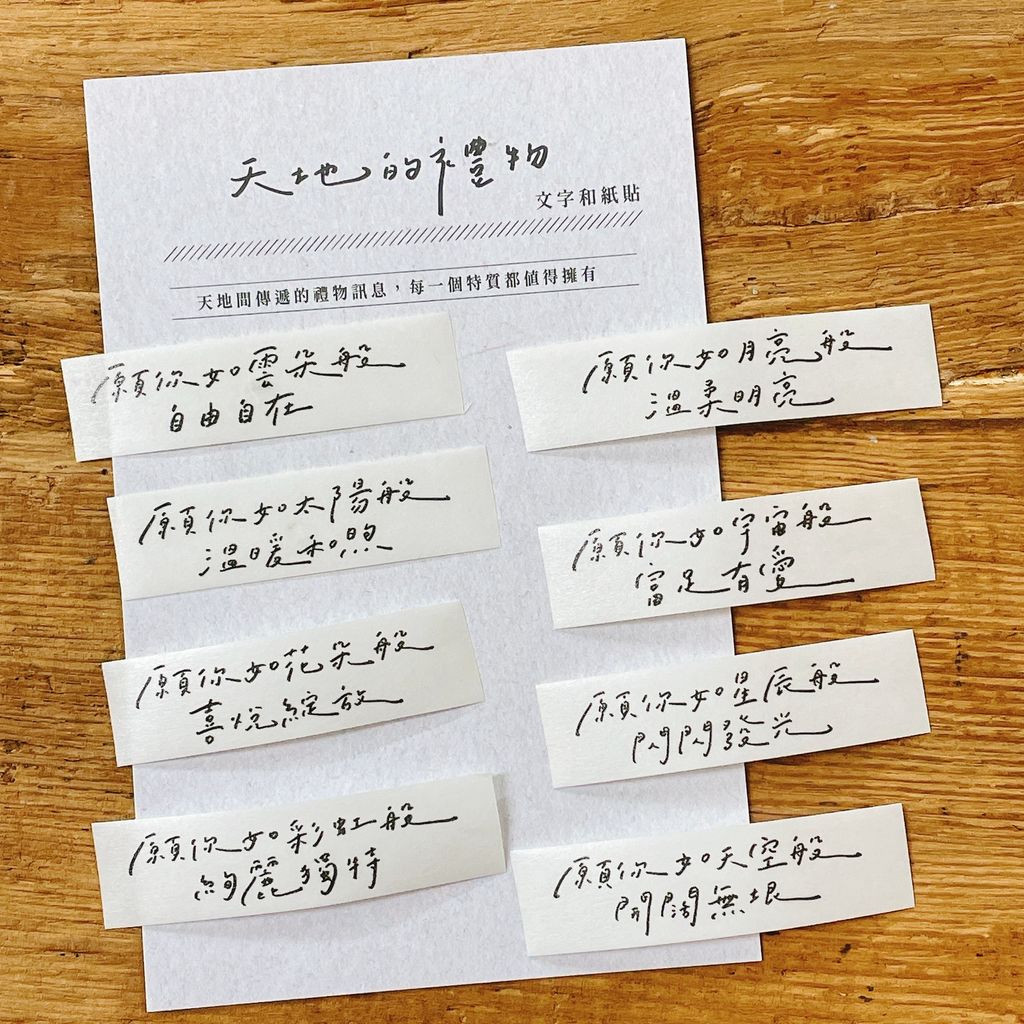 天地的禮物
文字和紙貼
天地間傳遞的禮物訊息，每一個特質都值得擁有
願你如雲朵般
自由自在
願你如太陽般
溫暖和煦
願你如花朵般
喜悅綻放
願你如彩虹般
絢麗獨特
願你如月亮般
溫柔明亮
願你如宇宙般
富足有愛
願你如星辰般
閃閃發光
願你如天空般
開闊無垠